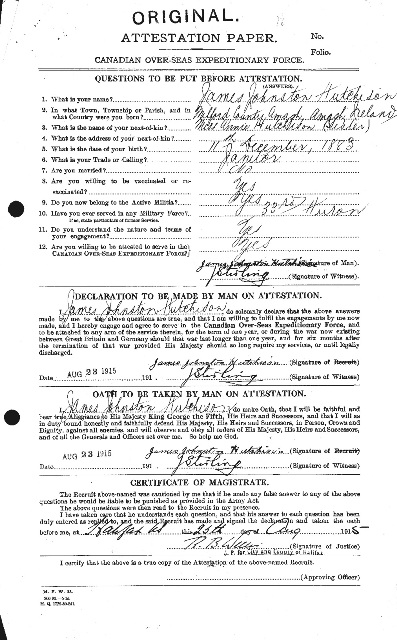 ORIGINAL.
ATTESTATION PAPER.
No.
Folio.
CANADIAN OVER-SEAS EXPEDITIONARY FORCE.
QUESTIONS TO BE PUT BEFORE ATTESTATION.
(ANSWERS)
1. What is your name? James Johnston Hutchison
2. In what Town, Township or Parish, and in
what Country were you born? Milford County Amagh, Amagh, Ireland
3. What is the name of your next-of-kin? Miss Annie Hutchison (Sister)
4. What is the address of your next-of-kin?
5. What is the date of your birth? 11th December, 1873
6. What is your Trade or Calling? Janitor
7. Are you married? No
8. Are you willing to be vaccinated or re-
vaccinated? Yes
9. Do you now belong to the Active Militia? Yes 33rd Huron
10. Have you ever served in any Military Force?
If so, state particulars of former Service.
11. Do you understand the nature and terms of
your engagement? Yes
12. Are you willing to be attested to serve in the
CANADIAN OVER-SEAS EXPEDITIONARY FORCE? Yes
James Johnston Hutchison (Signature of Man).
J Stirling (Signature of Witness)
DECLARATION TO BE MADE BY MAN ON ATTESTATION.
I, James Johnston Hutchison, do solemnly declare that the above answers
made by me to the above questions are true, and that I am willing to fulfil the engagements by me now
made, and I hereby engage and agree to serve in the Canadian Over-Seas Expeditionary Force, and to
be attached to any arm of the service therein, for the term of one year, or during the war now existing
between Great Britain and Germany should that war last longer than one year, and for six months after
the termination of that war provided His Majesty should so long require my services, or until legally
discharged.
James Johnston Hutchison (Signature of Recruit)
Date AUG 23 1915 191 . J Stirling (Signature of Witness)
OATH TO BE TAKEN BY MAN ON ATTESTATION.
I, James Johnston Hutchison, do make Oath, that I will be faithful and
bear true Allegiance to His Majesty King George the Fifth, His Heirs and Successors, and that I will as
in duty bound honestly and faithfully defend His Majesty, His Heirs and Successors, in Person, Crown and
Dignity, against all enemies, and will observe and obey all orders of His Majesty, His Heirs and Successors,
and of all the Generals and Officers set over me. So help me God.
James Johnston Hutchison (Signature of Recruit)
Date AUG 23 1915 191 . J Stirling (Signature of Witness)
CERTIFICATE OF MAGISTRATE.
The Recruit above-named was cautioned by me that if he made any false answer to any of the above
questions he would be liable to be punished as provided in the Army Act.
The above questions were then read to the Recruit in my presence.
I have taken care that he understands each question, and that his answer to each question has been
duly entered as replied to, and the said Recruit has made and signed the declaration and taken the oath
before me, at this day of Aug 1915
(Signature of Justice)
I certify that the above is a true copy of the Attestation of the above-named Recruit.
(Approving Officer)
M. F. W. 23.